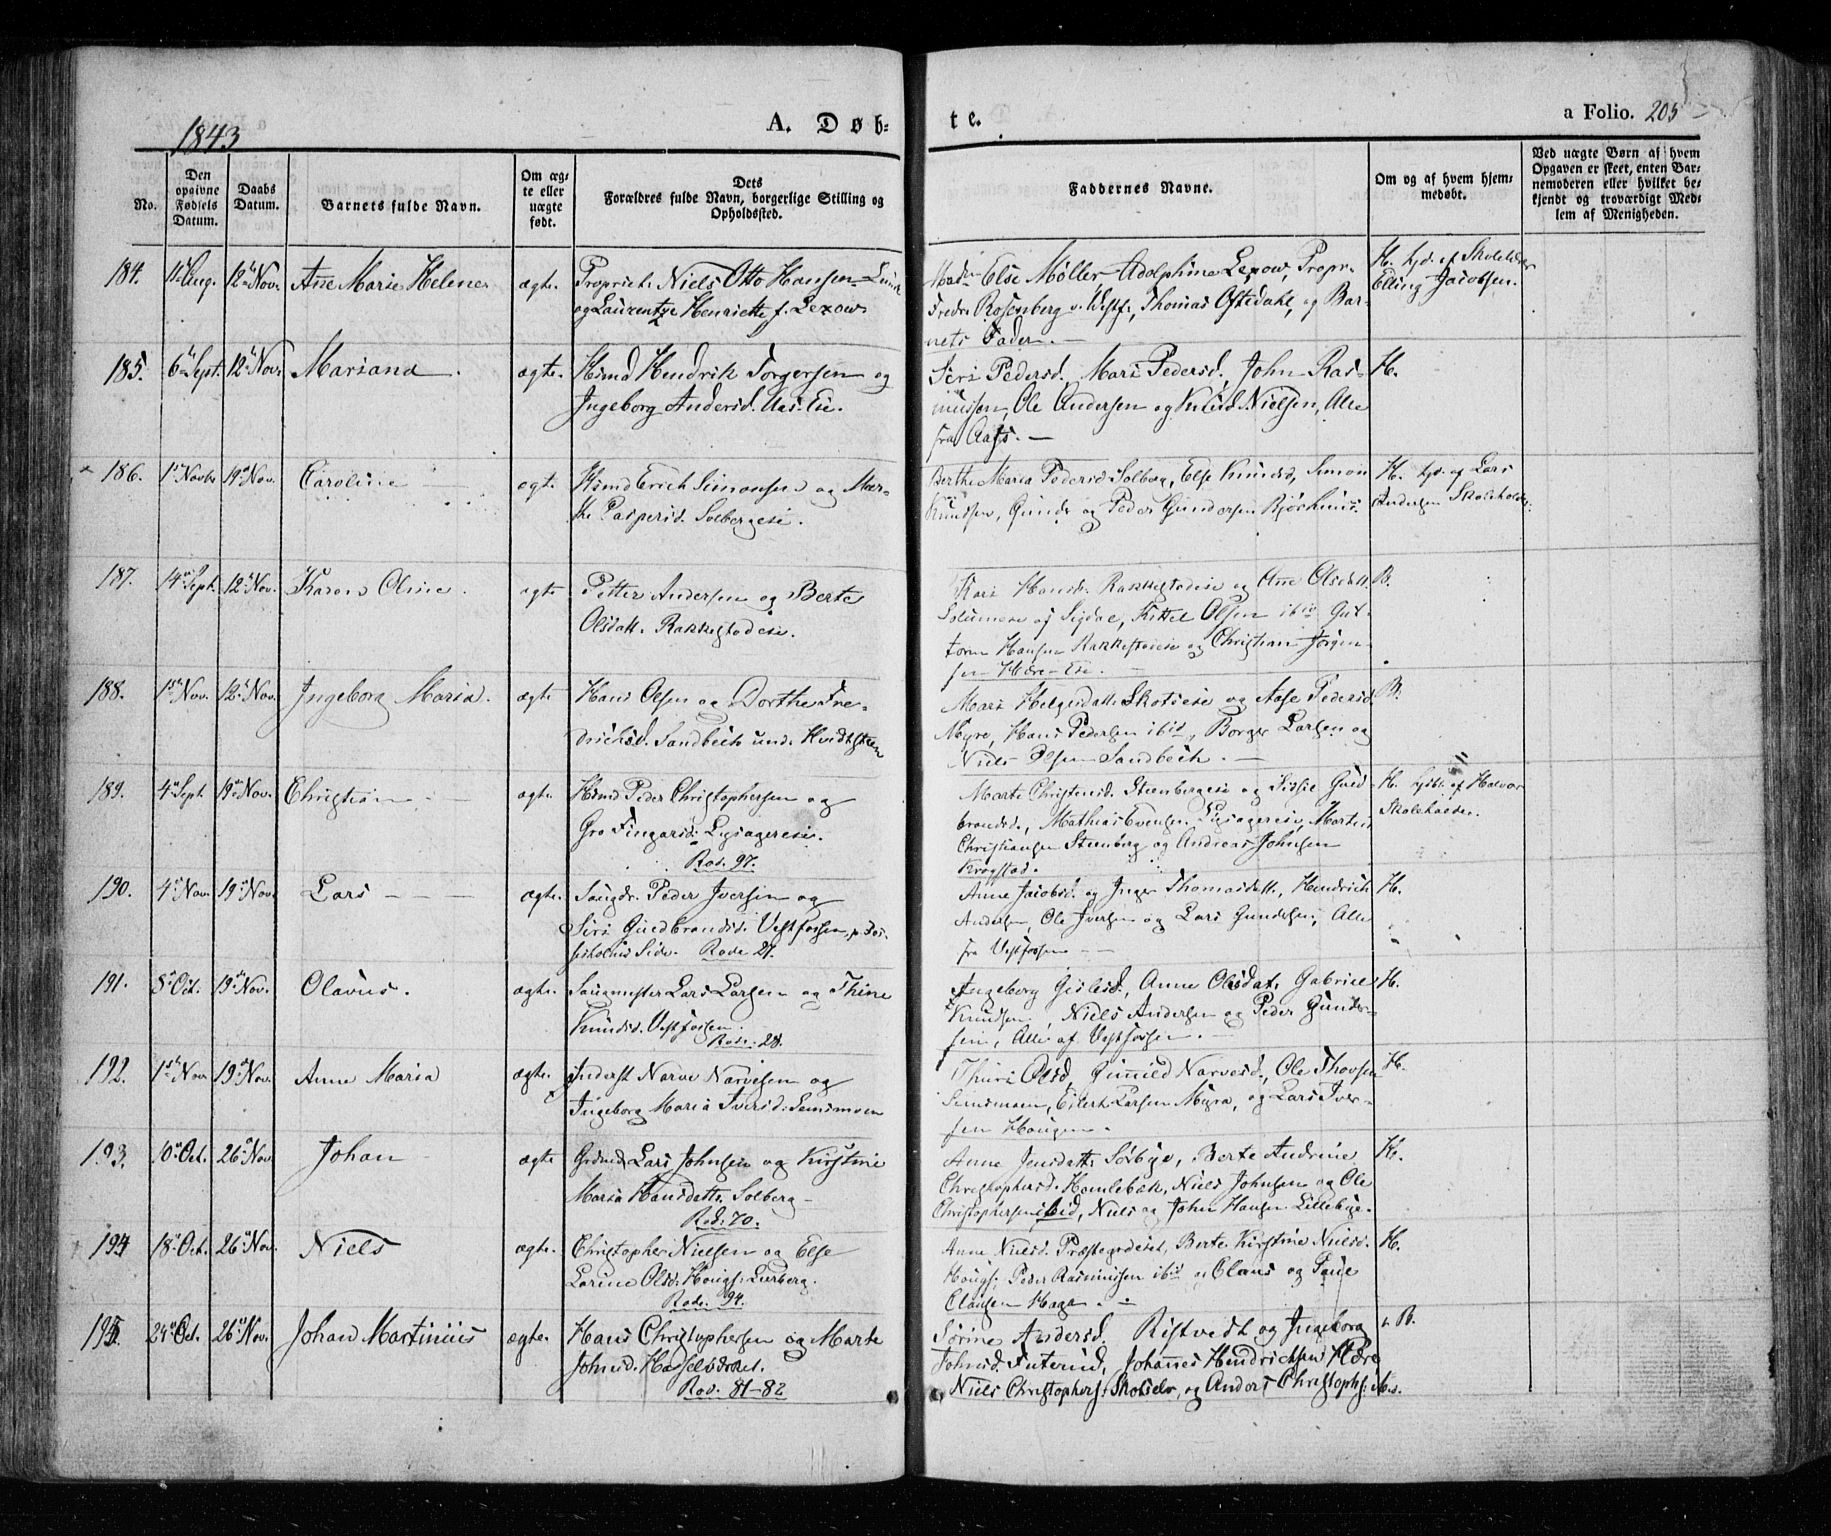 1843
A. Døb-
te.
a Folio. 205
No.
Den opgivne Fødsels Datum.
Daabs Datum.
Barnets fulde Navn.
Om ægte eller uægte født.
Dets
Forældres fulde Navn, borgerlige Stilling og
Opholdssted.
Faddernes Navne.
Om og af hvem hjemmedøbt.
Ved uægte Børn af hvem
Opgaven er skeet, enten Bar-
nemoderen eller hvilket be-
kjendt og troværdigt Med-
lem af Menigheden.
184. 11 Aug. 12 Nov. Ane Marie Helene ægte. Propriet. Niels Otto Hansen
og Laurentze Henriette f. Lexow
Else Møller, Adolphine Lexow, Propr.
Fredr. Rosenberg v. Vestf., Thomas Ofstedahl, og Bar-
nets Fader. —
H. af Skoleholder
Elling Jacobsen.
185. 6 Sept. 12 Nov. Mariana ægte. Hendrik Torgersen og
Ingeborg Andersd. Aas-Eie.
Siri Pedersd., Mari Pedersd., John Ras-
mussen, Ole Andersen og Knud Nielsen, Alle
fra Aas. —
H.
186. 1 Novbr 19 Nov. Caroline ægte. Erich Simonsen og Mar-
the Caspersd. Solbergeie.
Berthe Maria Pedersd. Solberg, Else Knudsd., Simon
Knudsen, Gunder og Peder Gundersen
H. af Lars
Andersen Skoleholder.
187. 14 Sept. 12 Nov. Karen Oline. ægte Petter Andersen og Berte
Olsdatt. Rakkestadeie.
Kari Hansd. Rakkestadeie og Ane Olsdatt.
af Sigdal, Kittel Olsen ibid. Gut-
torm Hansen Rakkestadeie og Christian Jørgen-
sen
B.
188. 1 Nov. 12 Nov. Ingeborg Maria. ægte Hans Olsen og Dorthe Fre-
drichsd. Sandbech und. Hvidtsteen
Mari Helgesdatt. Skotseie og Aase Pedersd.
Myre, Hans Pedersen ibid., Borger Larsen og
Niels Olsen Sandbech. —
B.
189. 4 Sept. 19 Nov. Christian — ægte. Peder Christophersen og
Gro Fingarsd.
Rod. 97.
Marte Christensd. Steenbergeie og Sissie Gud-
brandsd., Mathias Evensen Marten
Christiansen Steenberg og Andreas Johnsen
Krogstad.
H. af Halvor
Skoleholder.
190. 4 Nov. 19 Nov. Lars — — — ægte. Saugdr. Peder Iversen og
Siri Gudbrandsd. Vestfossen,
Side. Rode 21.
Anne Jacobsd. og Inger Thomasdatt., Hendrich
Andersen, Ole Iversen og Lars Gundersen, Alle
fra Vestfossen — —
H.
191. 8 Oct. 19 Nov. Olavus. ægte. Saugmester Lars Larsen og Thine
Knudsd. Vestfossen.
Rode. 28.
Ingeborg Anne Olsdat. Gabriel
Knudsen, Niels Andersen og Peder Gunder-
sen, Alle af Vestfossen.
H.
192. 1 Nov 19 Nov. Anne Maria ægte. Inderst Narve Narvesen og
Ingeborg Maria Iversd. Semsmoen
Thuri Olsd., Gunild Narvesd., Ole Thovsen
Semsmoen, Eilert Larsen Myra, og Lars Iver-
sen Haugen.
H.
193. 10 Oct. 26 Nov Johan ægte Lars Johnsen og Kirstine
Maria Hansdatt. Solberg —
Rod. 70.
Anne Jensdatt. Sørbye, Berte Andrine
Christophersd. Hamlebak, Niels Johnsen og Ole
Christophersen ibid, Niels og John Hansen Lillebye.
H.
194 18 Oct. 26 Nov. Niels ægte. Christopher Nielsen og Else
Larine Olsd. Lierberg.
Rode. 94.
Anne Nielsd. Berte Kirstine Nielsd.
Peder Rasmussen ibid og Claus og
Clausen Haga. —
H.
195. 24 Oct. 26 Nov. Johan Martinius ægte. Hans Christophersen og Marte
Johnsd.
Rod. 81-82
Sørine Andersd. Ristvedt og Ingeborg
Johnsd. Johannes Hendrichsen Hære
Niels Christophers. og Anders Christophs.
B.